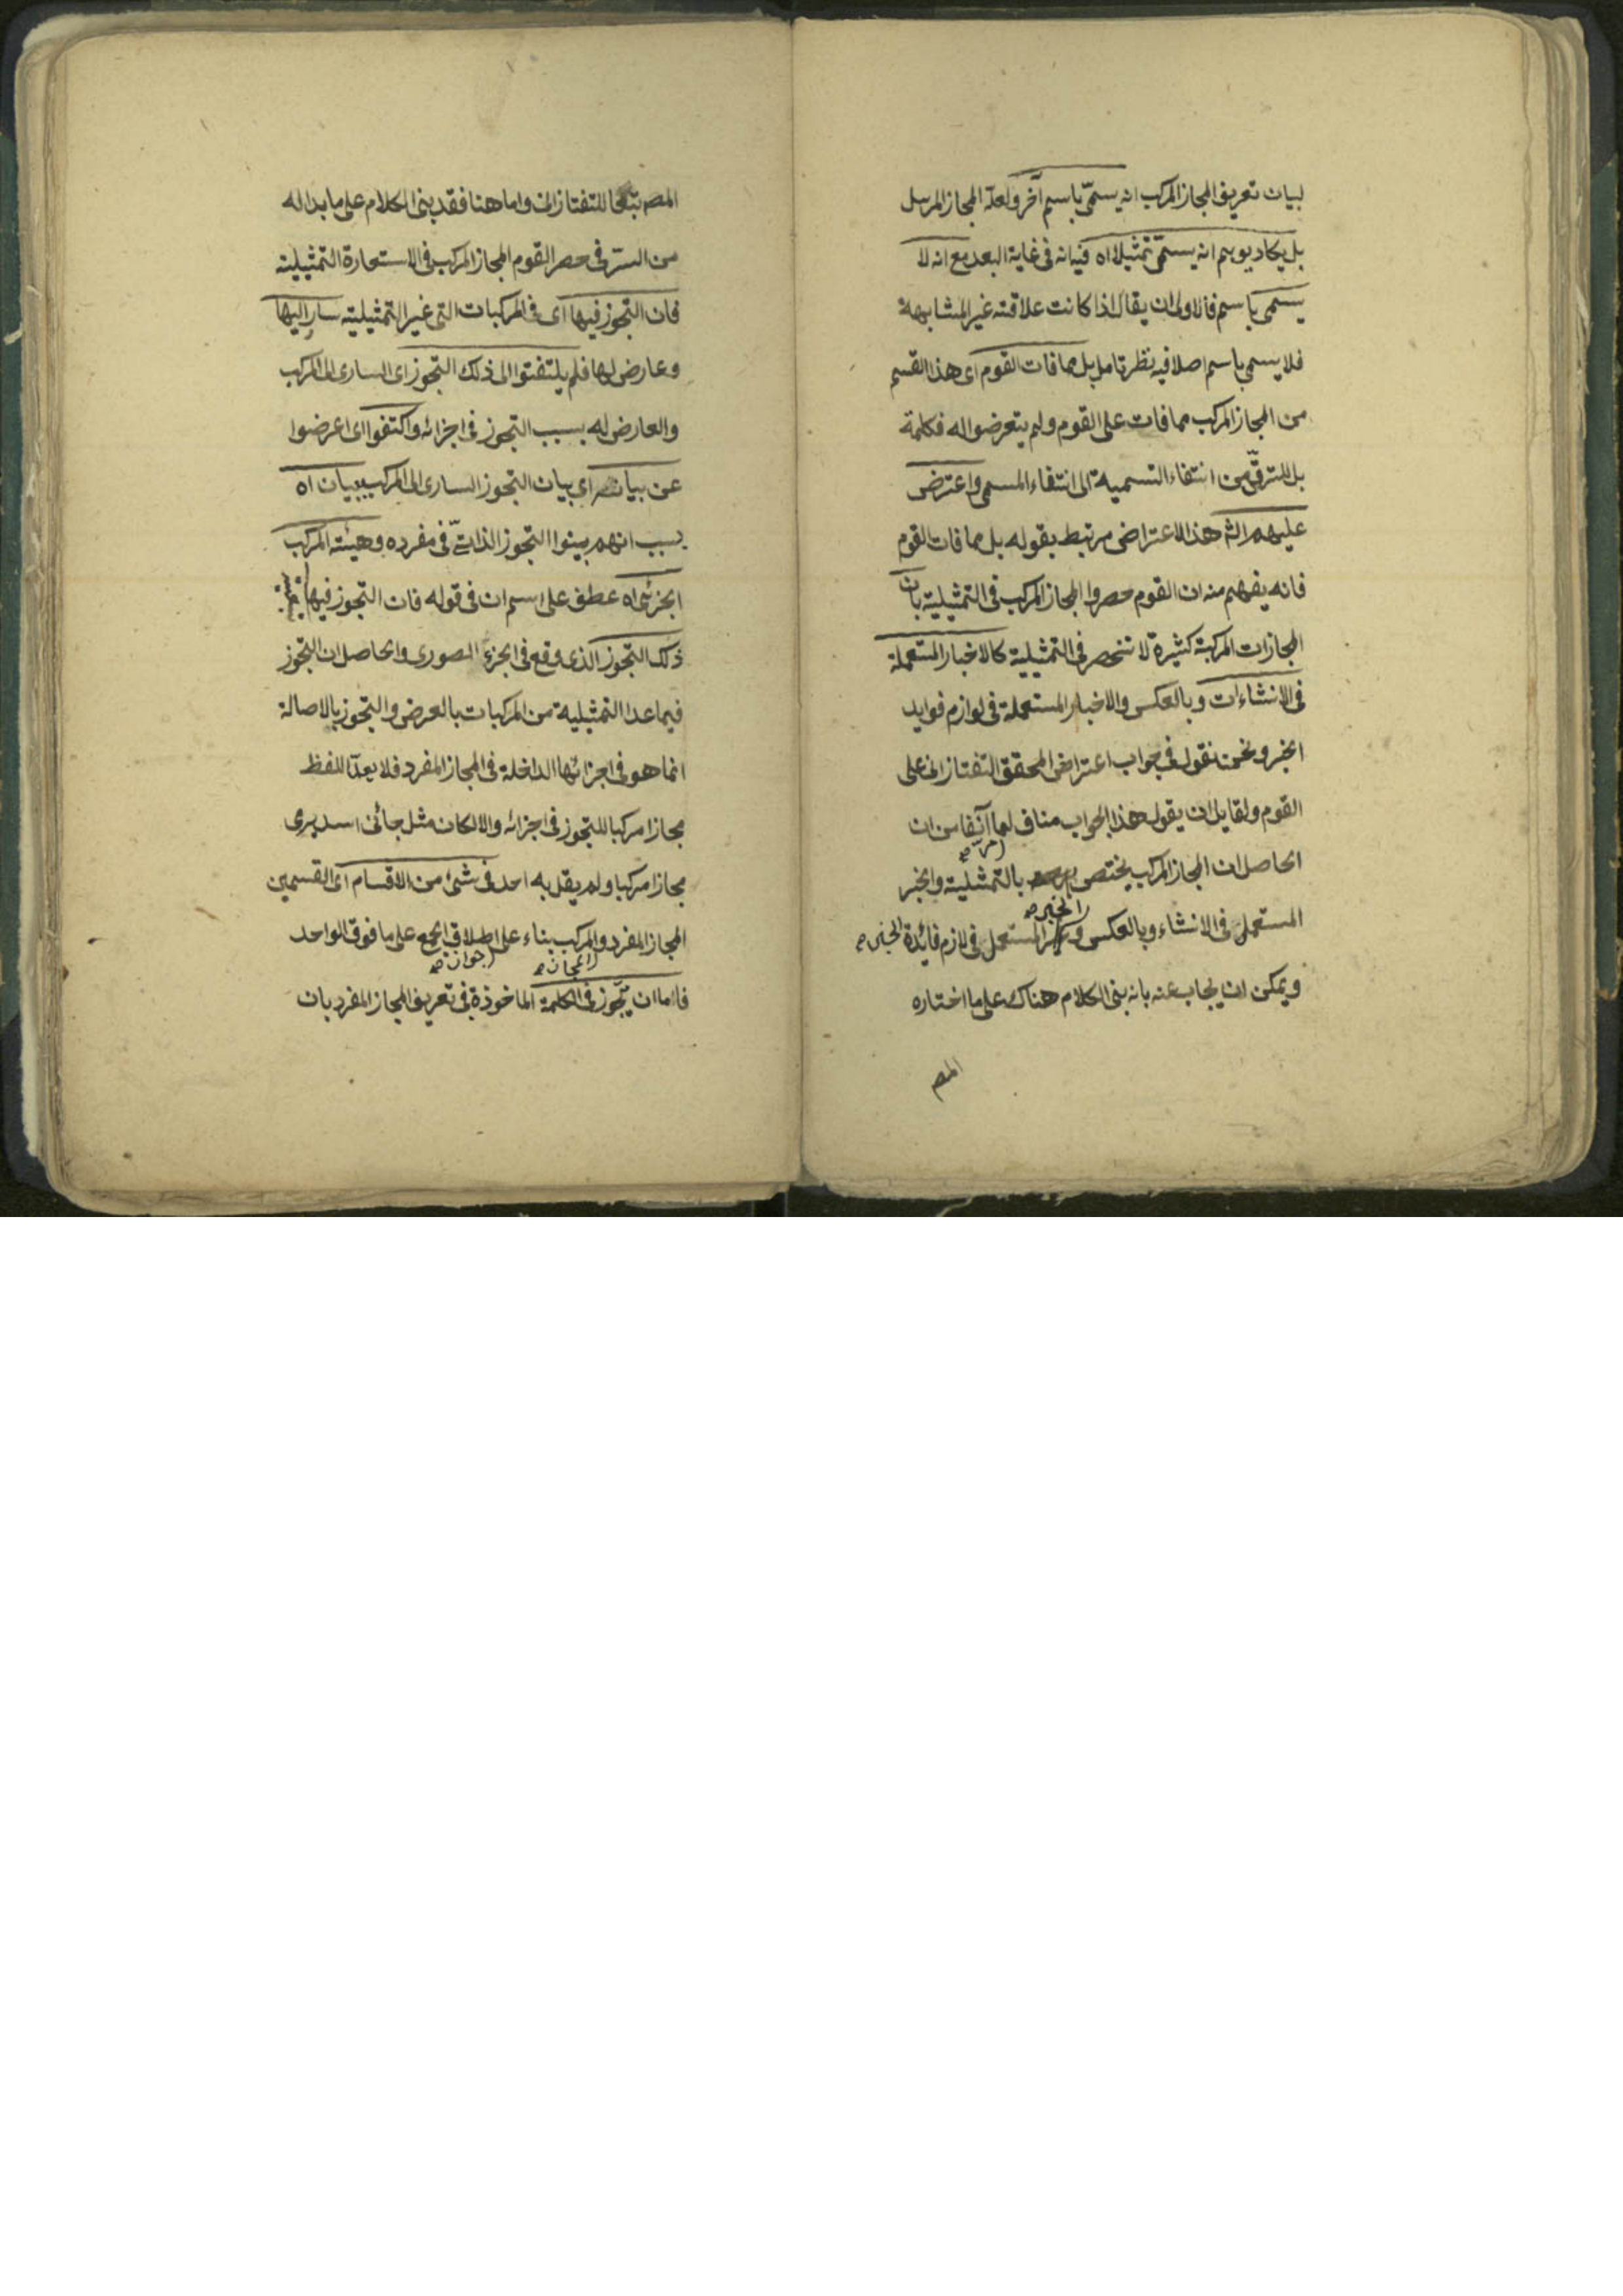 لبيان تعريف المجاز المركب انه يسمّى باسم آخر ولعله المجاز المرسل
بل يكاد يوهم انه يسمّى تمثيلا اه فيه انه فى غاية البعد مع انه لا
يسمى باسم فالاولى ان يقال اذا كانت علاقته غير المشابهة
فلا يسمى باسم اصلا فيه نظر تامل بل مما فات القوم اى هذا القسم
من المجاز المركب مما فات على القوم ولم يتعرضوا له فكلمة
بل للترقّى من انتفاء التسمية الى انتفاء المسمى واعترض
عليهم الثه هذا الاعتراض مرتبط بقوله بل مما فات القوم
فانه يفهم منه ان القوم حصروا المجاز المركب فى التمثيلية بان
المجازات المركبة كثيرة لا تنحصر فى التمثيلية كالاخبار المستعملة
فى الانشاءات وبالعكس والاخبار المستعملة فى لوازم فوايد
الخبر ونحن نقول فى جواب اعتراض المحقق التفتازانى على
القوم ولقايل ان يقول هذا الجواب مناف لما آنفا من ان
مر صح
الحاصل ان المجاز المركب يختص بالتمثيلية والخبر
المستعمل فى الانشاء وبالعكس و المستعمل فى لازم فائدة الخبر صح
الخبر صح
ويمكن ان يجاب عنه بانه بنى الكلام هناك على ما اختاره
المص
المص تبعا للتفتازانى واما هنا فقد بنى الكلام على ما بدا له
من السرّ فى حصر القوم المجاز المركب فى الاستعارة التمثيلية
فان التجوز فيها اى فى المركبات التى غير التمثيلية سار اليها
وعارض لها فلم يلتفتوا الى ذلك التجوز اى السارى الى المركب
والعارض له بسبب التجوز فى اجزائه واكتفوا اى اعرضوا
عن بيانه اى بيان التجوز السارى الى المركب ببيان اه
بسبب انهم بينوا التجوز الذاتىّ فى مفرده وهيئته المركب
الجزئى اه عطف على اسم ان فى قوله فان التجوز فيها
ذلك التجوز الذى وقع فى الجزء الصورى والحاصل ان التجوز
فيما عدا التمثيلية من المركبات بالعرض والتجوز بالاصالة
انما هو فى اجزائها الداخلة فى المجاز المفرد فلا يعدّ اللفظ
مجازا مركبا للتجوز فى اجزائه والا لكان مثل جائنى اسد يرمى
مجازا مركبا ولم يقل به احد فى شئ من الاقسام اى القسمين
المجاز المفرد والمركب بناء على اطلاق الجمع على ما فوق الواحد
المجاز صح جواز صح
فاما ان يتجوز فى الكلمة الماخوذة فى تعريف المجاز المفرد بان